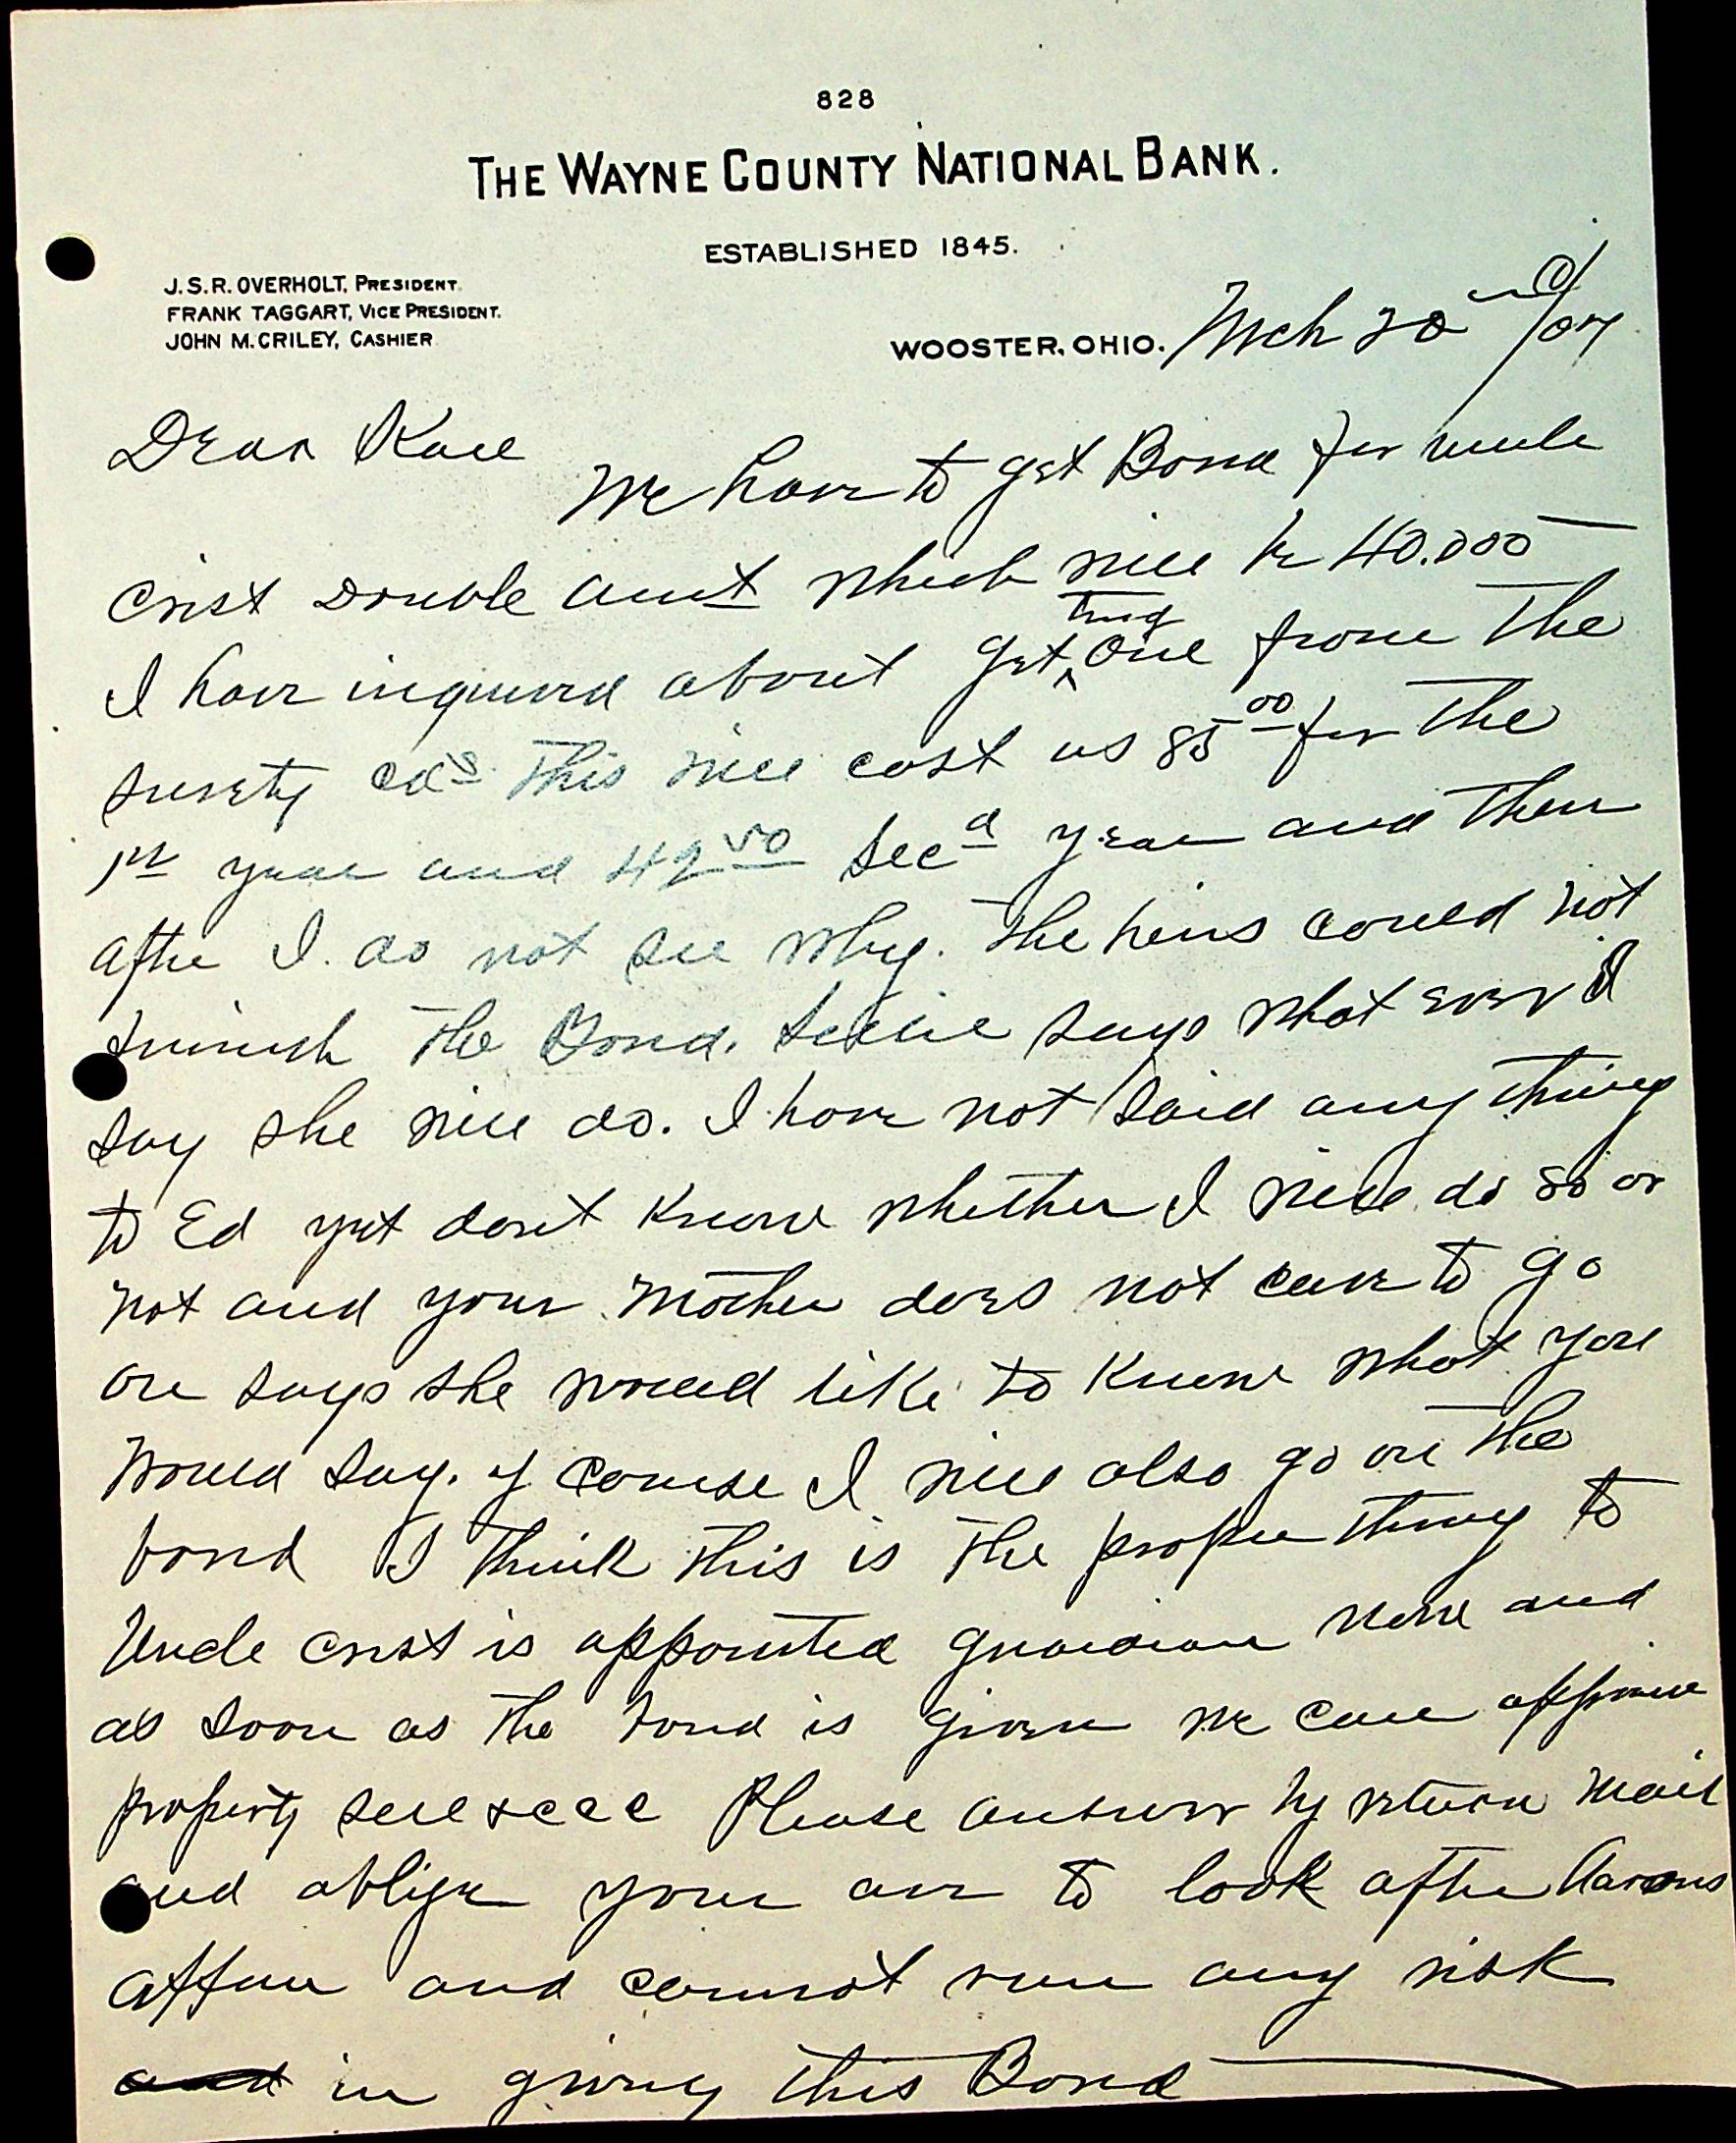 828
THE WAYNE COUNTY NATIONAL BANK.
ESTABLISHED 1845.
J.S.R. OVERHOLT, PRESIDENT.
FRANK TAGGART, VICE PRESIDENT.
JOHN M. CRILEY, CASHIER
WOOSTER, OHIO. Mch 20
Dear
We have to get Bond for uncle
Crist Double amt which will be 40.000
I have inquired about get^ting one from the
surety cos This will cost us 85 00 for the
1st year and 42 50 Secd year and then
after I do not see why. The heirs could not
furnish the Bond. says what ever I
say she will do. I have not said any thing
to Ed yet dont know whether I will do so or
not and your Mother does not care to go
on says she would like to know what you
would say. of course I will also go on the
bond I think this is the proper thing to
Uncle Crist is appointed guardian now and
as soon as the bond is given we can appraise
property sell &ccc Please answer by return mail
and oblige your are to look after Aarons
affair and cannot run any risk
in giving this Bond